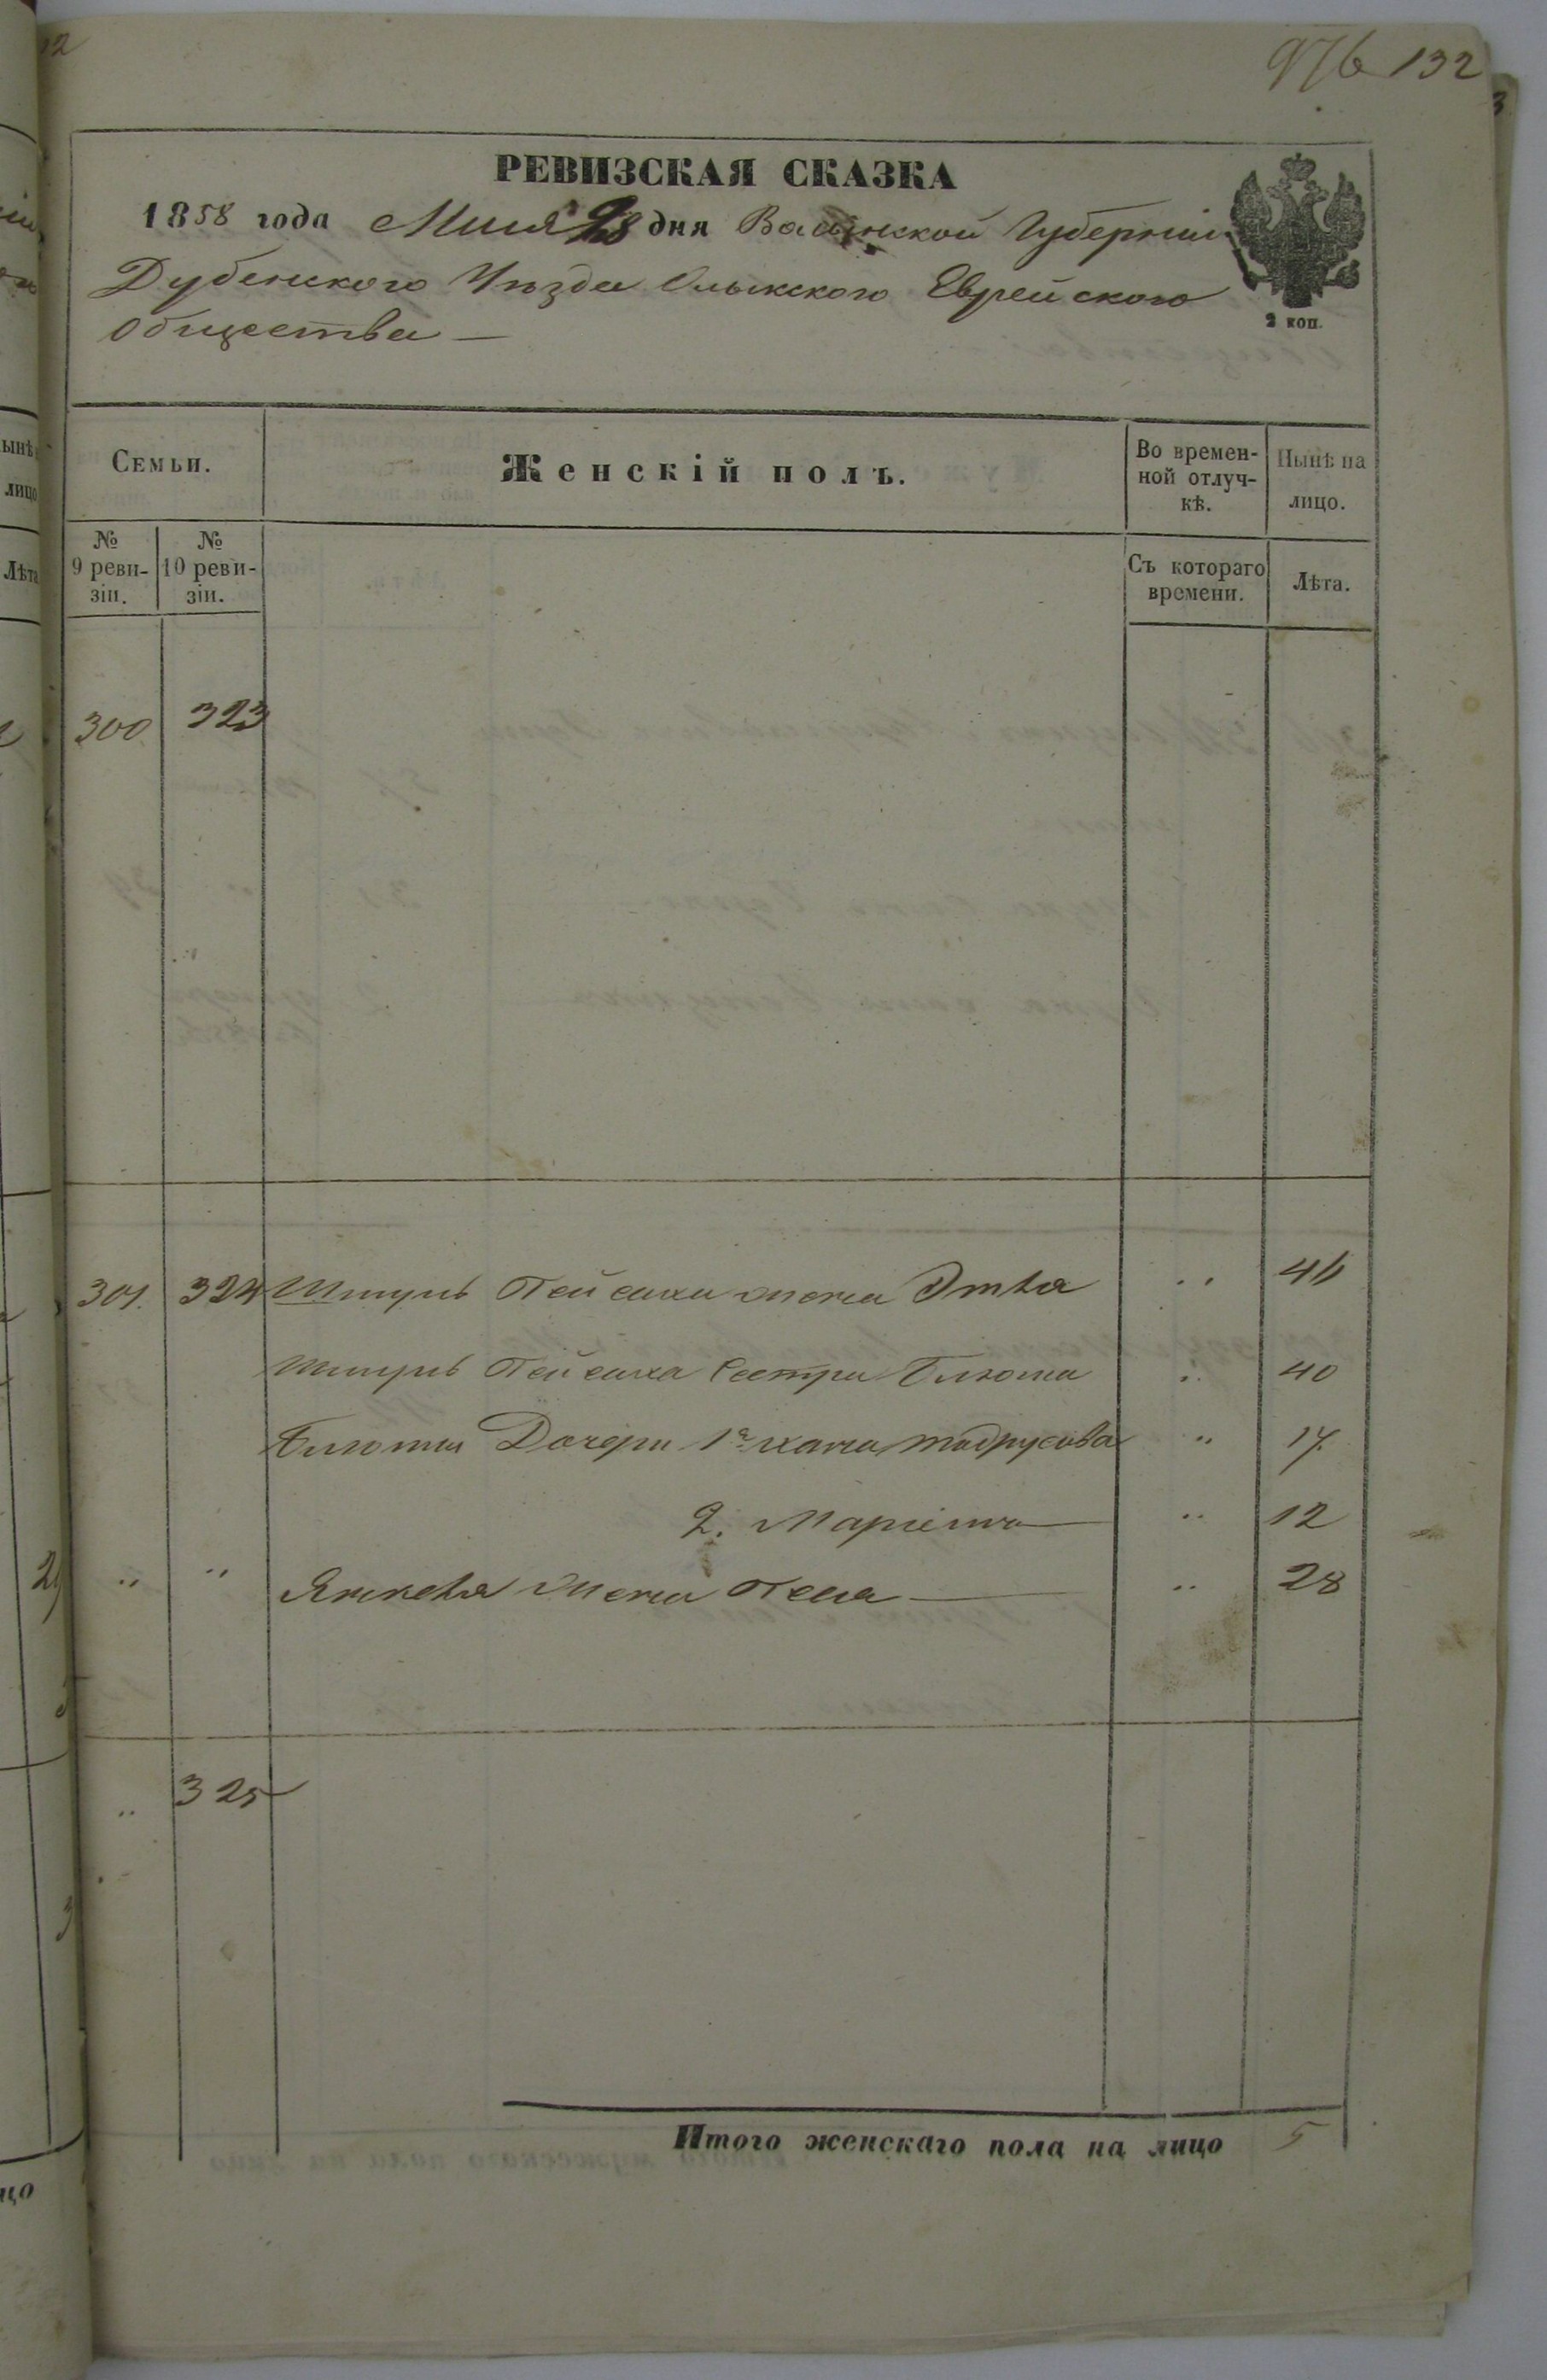 976 132
РЕВИЗСКАЯ СКАЗКА
1858 года Маия 28 дня Валынской Губерніи
Дубенского Уѣзда Олыкского Еврейского
Общества —
2 коп.
Семьи.
Женскій полъ.
Во времен-
ной отлуч-
кѣ.
Нынѣ на
лицо.
№
9 реви-
зіи.
№
10 реви-
зіи.
Съ котораго
времени.
Лѣта.
300 323
301. 324 Шмуль Пейсаха жена Этля " 46
Шмуль Пейсаха Сестра Блюма " 40
Блюмы Дочери 1я Хана " 17.
2. Маріем " 12
" " Янкеля жена Песя — " 28
" 325
Итого женскаго пола на лицо 5